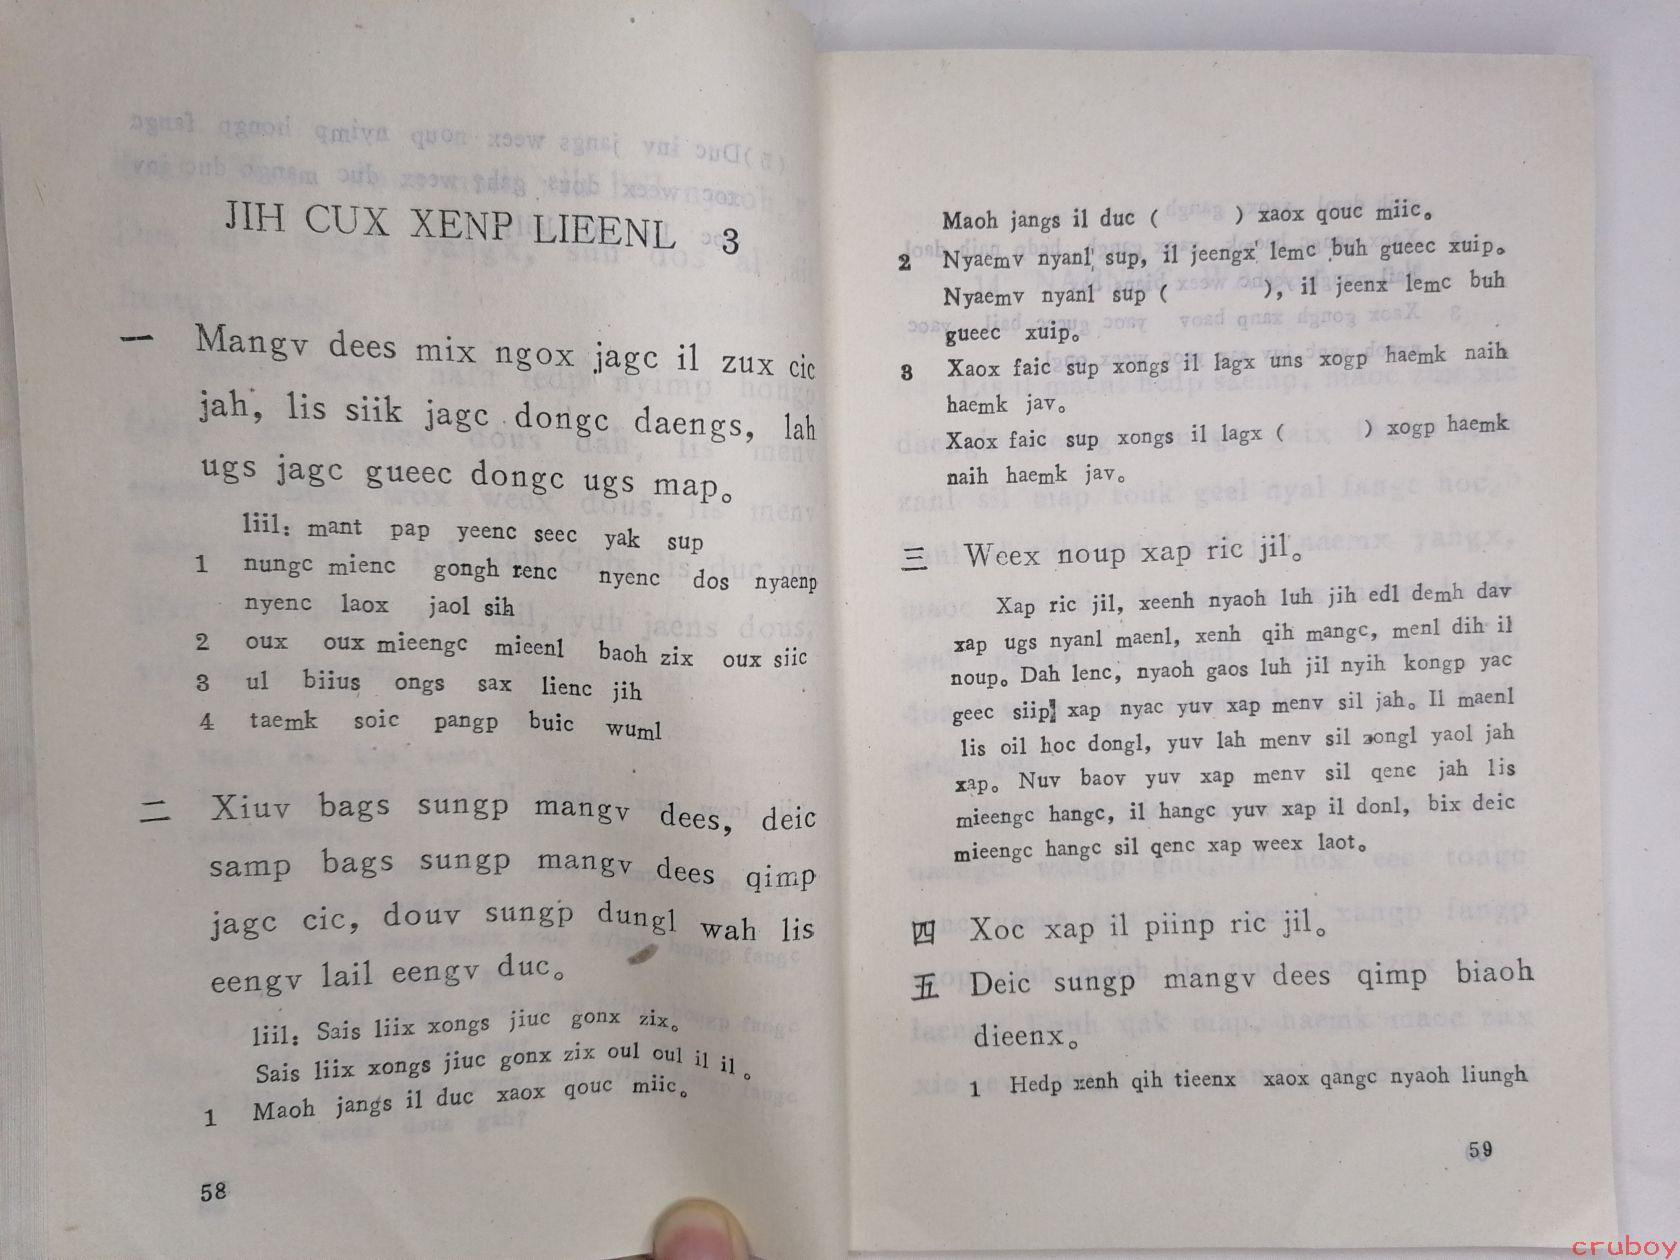 JIH CUX XENP LIEENL 3
一 Mangv dees mix ngox jagc il zux cic
jah, lis siik jagc dongc daengs, lah
ugs jagc gueec dongc ugs map。
liil: mant pap yeenc seec yak sup
1 nungc mienc gongh renc nyenc dos nyaenp
nyenc laox jaol sih
2 oux oux mieengc mieenl baoh zix oux siic
3 ul biius ongs sax lienc jih
4 taemk soic pangp buic wuml
二 Xiuv bags sungp mangv dees, deic
samp bags sungp mangv dees qimp
jagc cic, douv sungp dungl wah lis
eengv lail eengv duc。
liil: Sais liix xongs jiuc gonx zix。
Sais liix xongs jiuc gonx zix oul oul il il。
1 Maoh jangs il duc xaox qouc miic。
58
Maoh jangs il duc ( ) xaox qouc miic。
2 Nyaemv nyanl sup, il jeengx lemc buh gueec xuip。
Nyaemv nyanl sup ( ), il jeenx lemc buh
gueec xuip。
3 Xaox faic sup xongs il lagx uns xogp haemk naih
haemk jav。
Xaox faic sup xongs il lagx ( ) xogp haemk
naih haemk jav。
三 Weex noup xap ric jil。
Xap ric jil, xeenh nyaoh luh jih edl demh dav
xap ugs nyanl maenl, xenh qih mangc, menl dih il
noup。 Dah lenc, nyaoh gaos luh jil nyih kongp yac
geec siip, xap nyac yuv xap menv sil jah。 Il maenl
lis oil hoc dongl, yuv lah menv sil songl yaol jah
xap。 Nuv baov yuv xap menv sil qenc jah lis
mieengc hangc, il hangc yuv xap il donl, bix deic
mieengc hangc sil qenc xap weex laot。
四 Xoc xap il piinp ric jil。
五 Deic sungp mangv dees qimp biaoh
dieenx。
1 Hedp xenh qih tieenx xaox qangc nyaoh liungh
59
cruboy